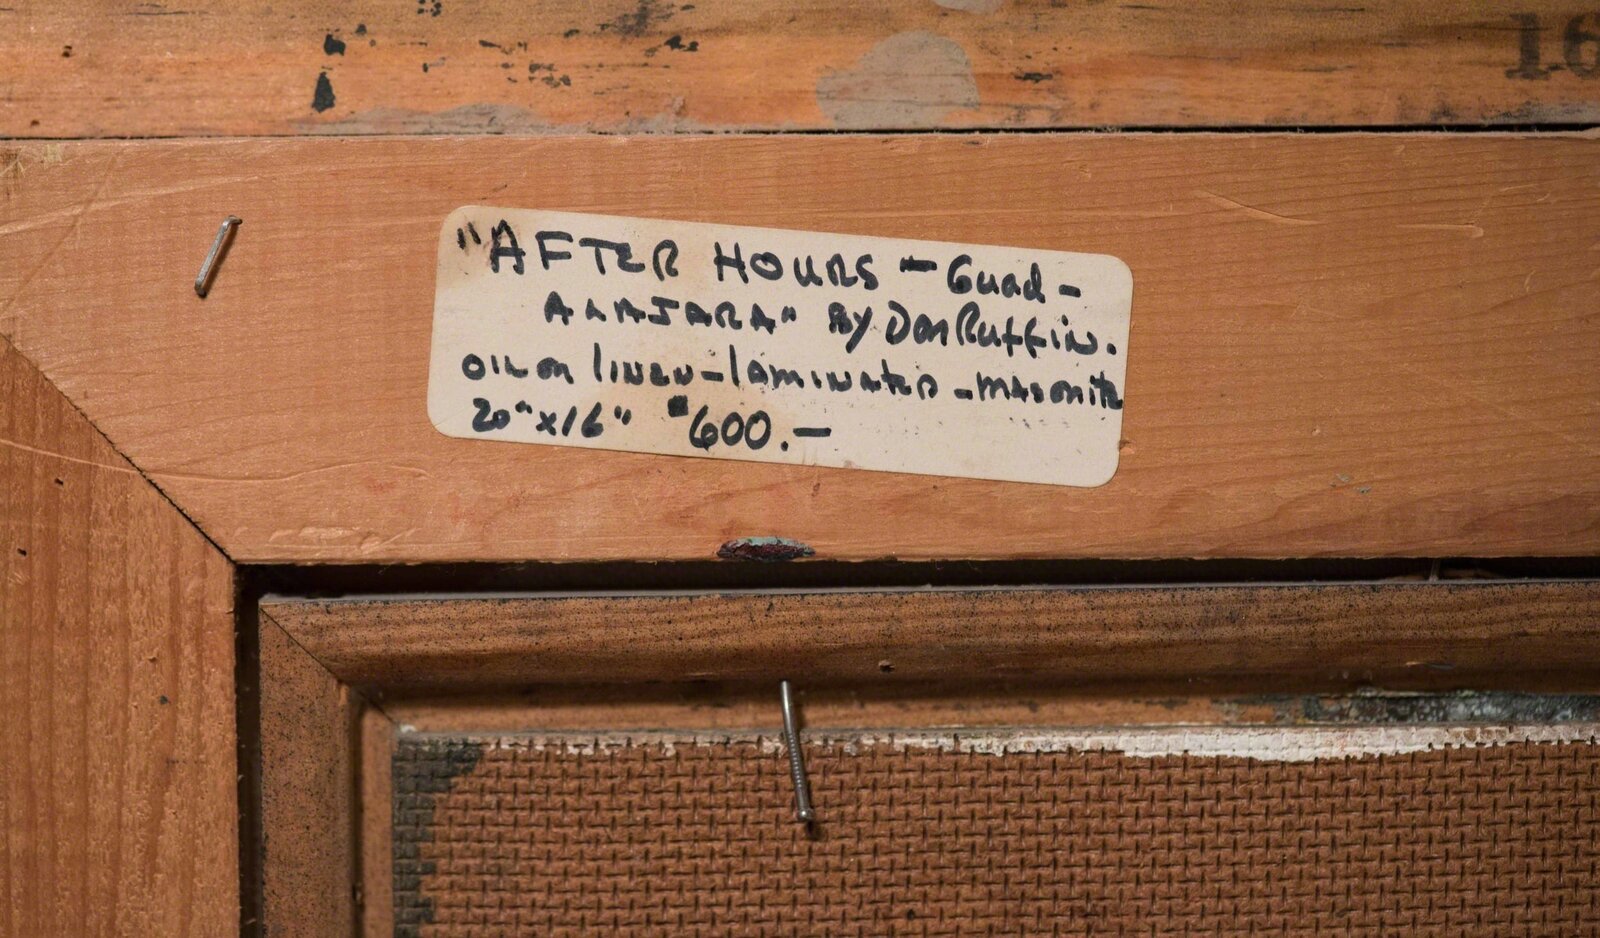 16
"AFTER HOURS - Guad-
ALAJARA" BY Don Ruffin.
OIL on linen-laminated-masonite
20"x16" $600.-